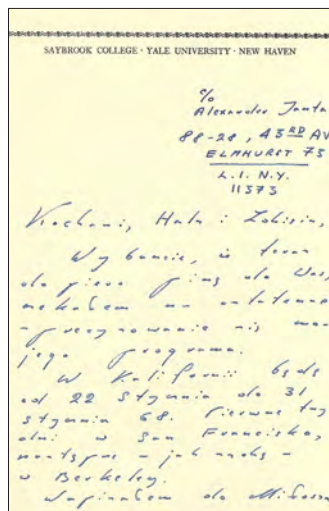 SAYBROOK COLLEGE · YALE UNIVERSITY · NEW HAVEN
c/o
Alexander Janta
88-28, 43RD AV
ELMHURST 73
L.I. N.Y.
11373
Kochani, Hala i Zbisiu,
Wybaczcie, iż teraz
dopiero piszę do Was,
czekałem na ostateczne
sprecyzowanie się mo-
jego programu.
W Kalifornii będę
od 22 stycznia do 31
stycznia 68. Pierwsze trzy
dni w San Francisko,
następnie - jak sądzę -
w Berkeley.
Napisałem do Miłosza